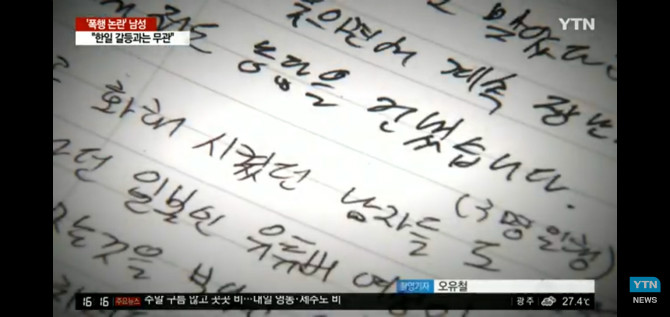 '폭행 논란' 남성
"한일 갈등과는 무관"
YTN
말았다
계속 장난
농담을 건넸습니다.
화해 시켰던 남자들 도
(3명일행)
일본인 유튜버
는것을
촬영기자 오유철
16 16 주요뉴스 주말 구름 많고 곳곳 비…내일 영동·제주도 비
광주 27.4℃
YTN
NEWS